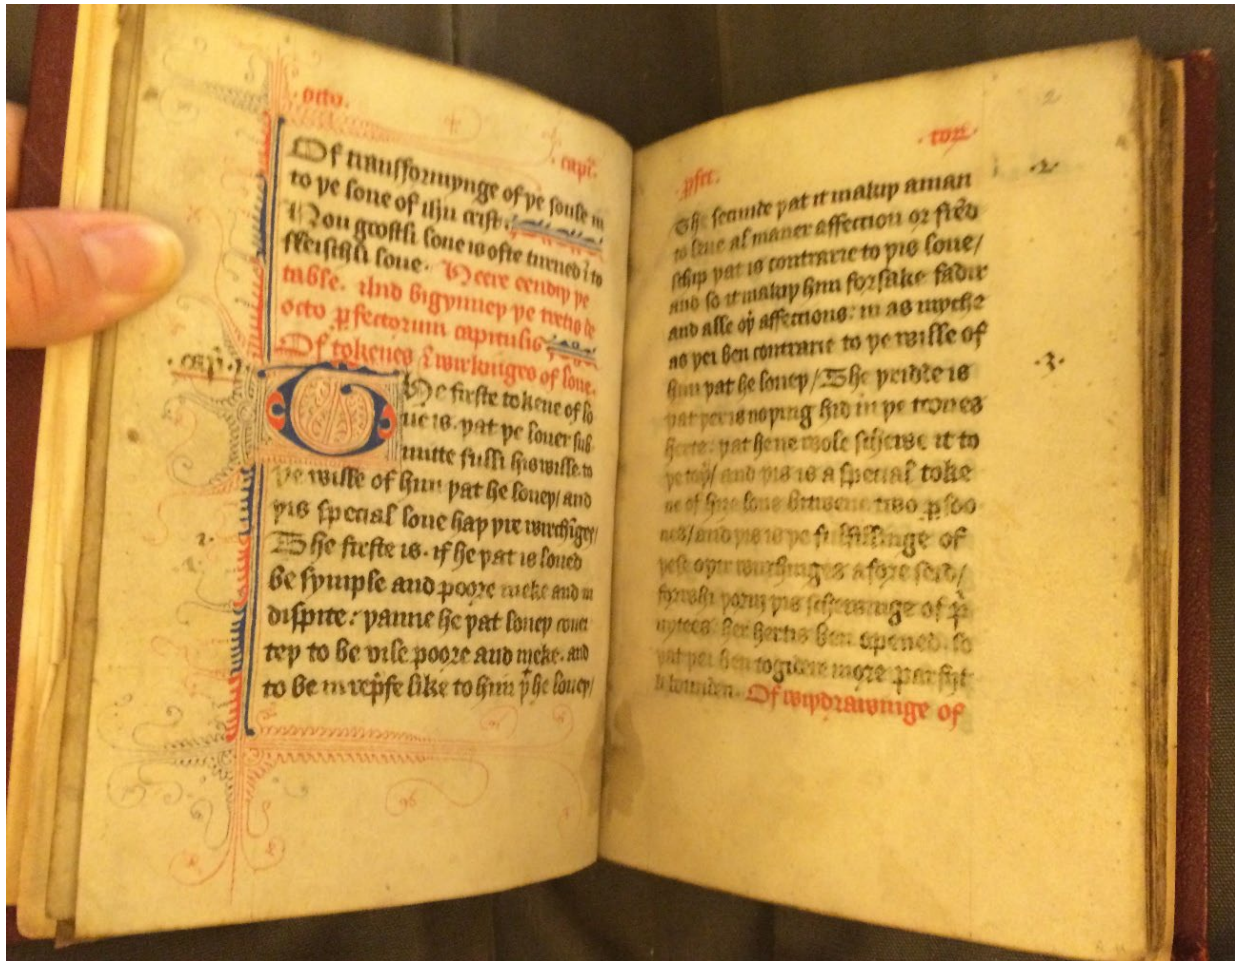 .octo.
.capi.
Of transformynge of þe soule in
to þe sone of ihu crist.
Hou goostli loue is ofte turned ī to
fleischli loue. Heere eendiþ þe
table. And bigynneþ þe tretis de
octo ꝑfectorum capitulis
Of tokenes & wirkinges of loue.
.capm. 1.
The firste tokene of lo
ue is. þat þe louer sub
mitte fulli his wille. to
þe wille of him þat he loueþ/ and
þis special loue haþ þre wirchīges/
1.
The firste is. if he þat is loued
be symple and poore meke and in
dispite: þanne he þat loueþ couei
teþ to be vile poore and meke. and
to be in repꝛefe like to him þͭ he loueþ/
2
.pfec.
.toꝝ.
.2.
The secunde þat it makiþ a man
to leue al maner affeccion or frēd
schip þat is contrarie to þis loue/
and so it makiþ him forsake fadir
and alle oþͥ affeccions: in as myche
as þei ben contrarie to þe wille of
him þat he loueþ/ The þridde is
.3.
þat þer is noþing hid in þe toones
herte: þat he ne wole schewe it to
þe toþͥ/ and þis is a special toke
ne of loue bitwene two ꝑsoo
nes/ and þis is þe fulfillinge of
þese oþͥe wirchinges afore seid/
forwhi þoruȝ þis schewinge of pͥ
uytees. her hertis ben opened. so
þat þei ben togidere more parfijt
li bounden. Of wiþdrawinge of